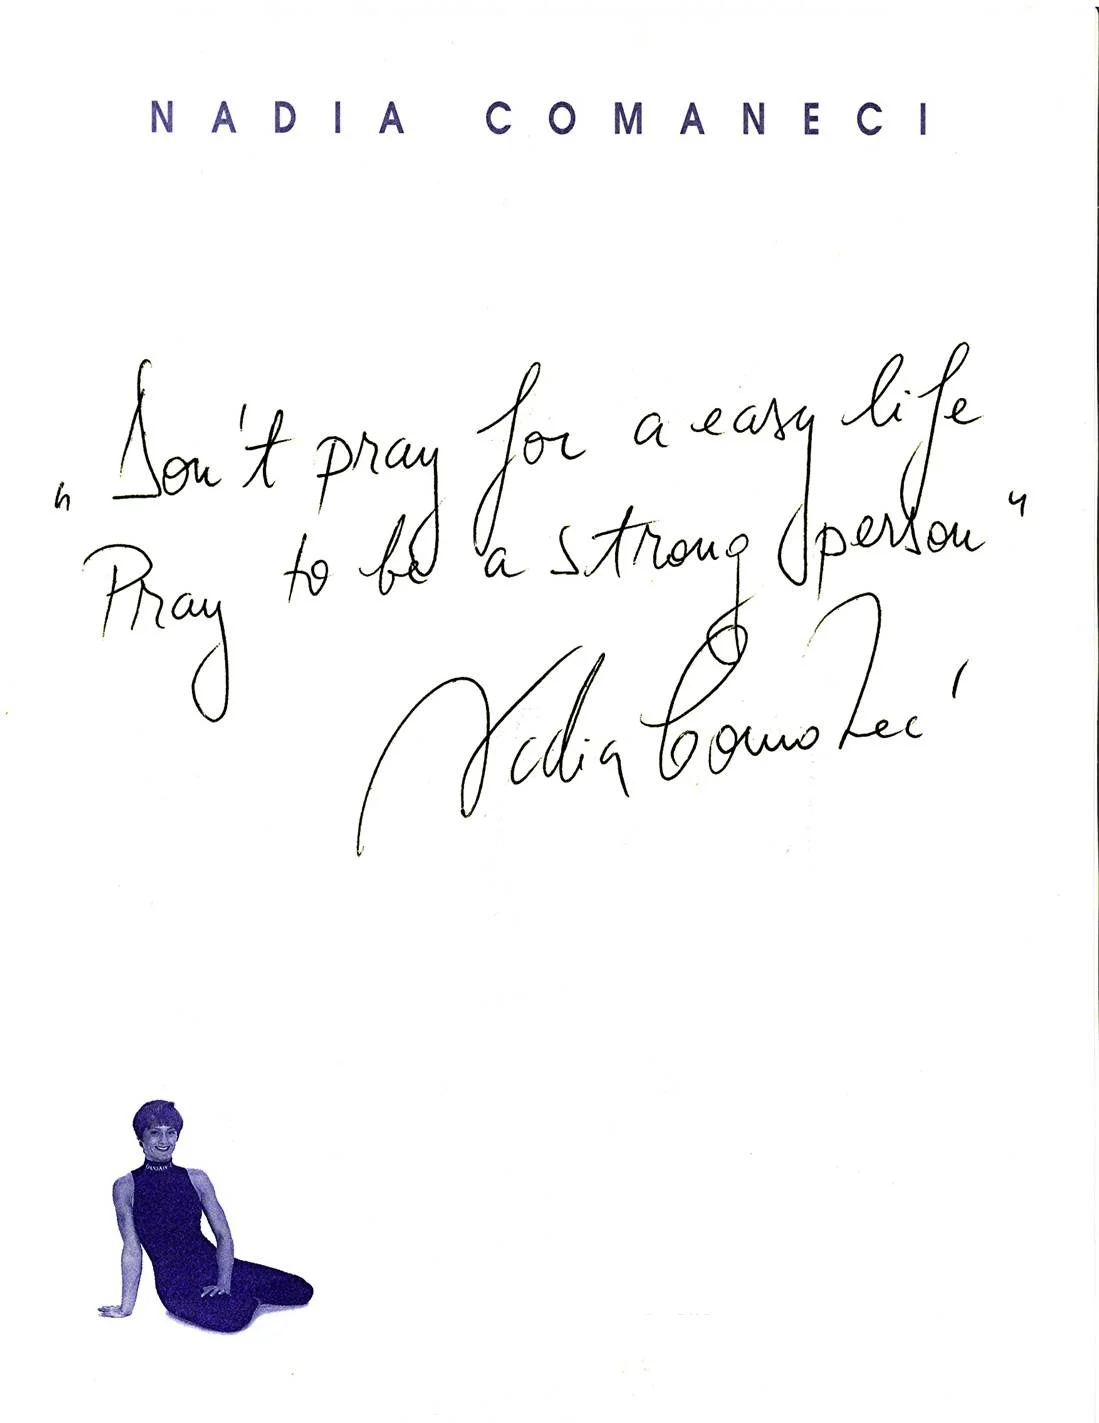 NADIA COMANECI
„Don't pray for a easy life
Pray to be a strong person"
Nadia Comaneci